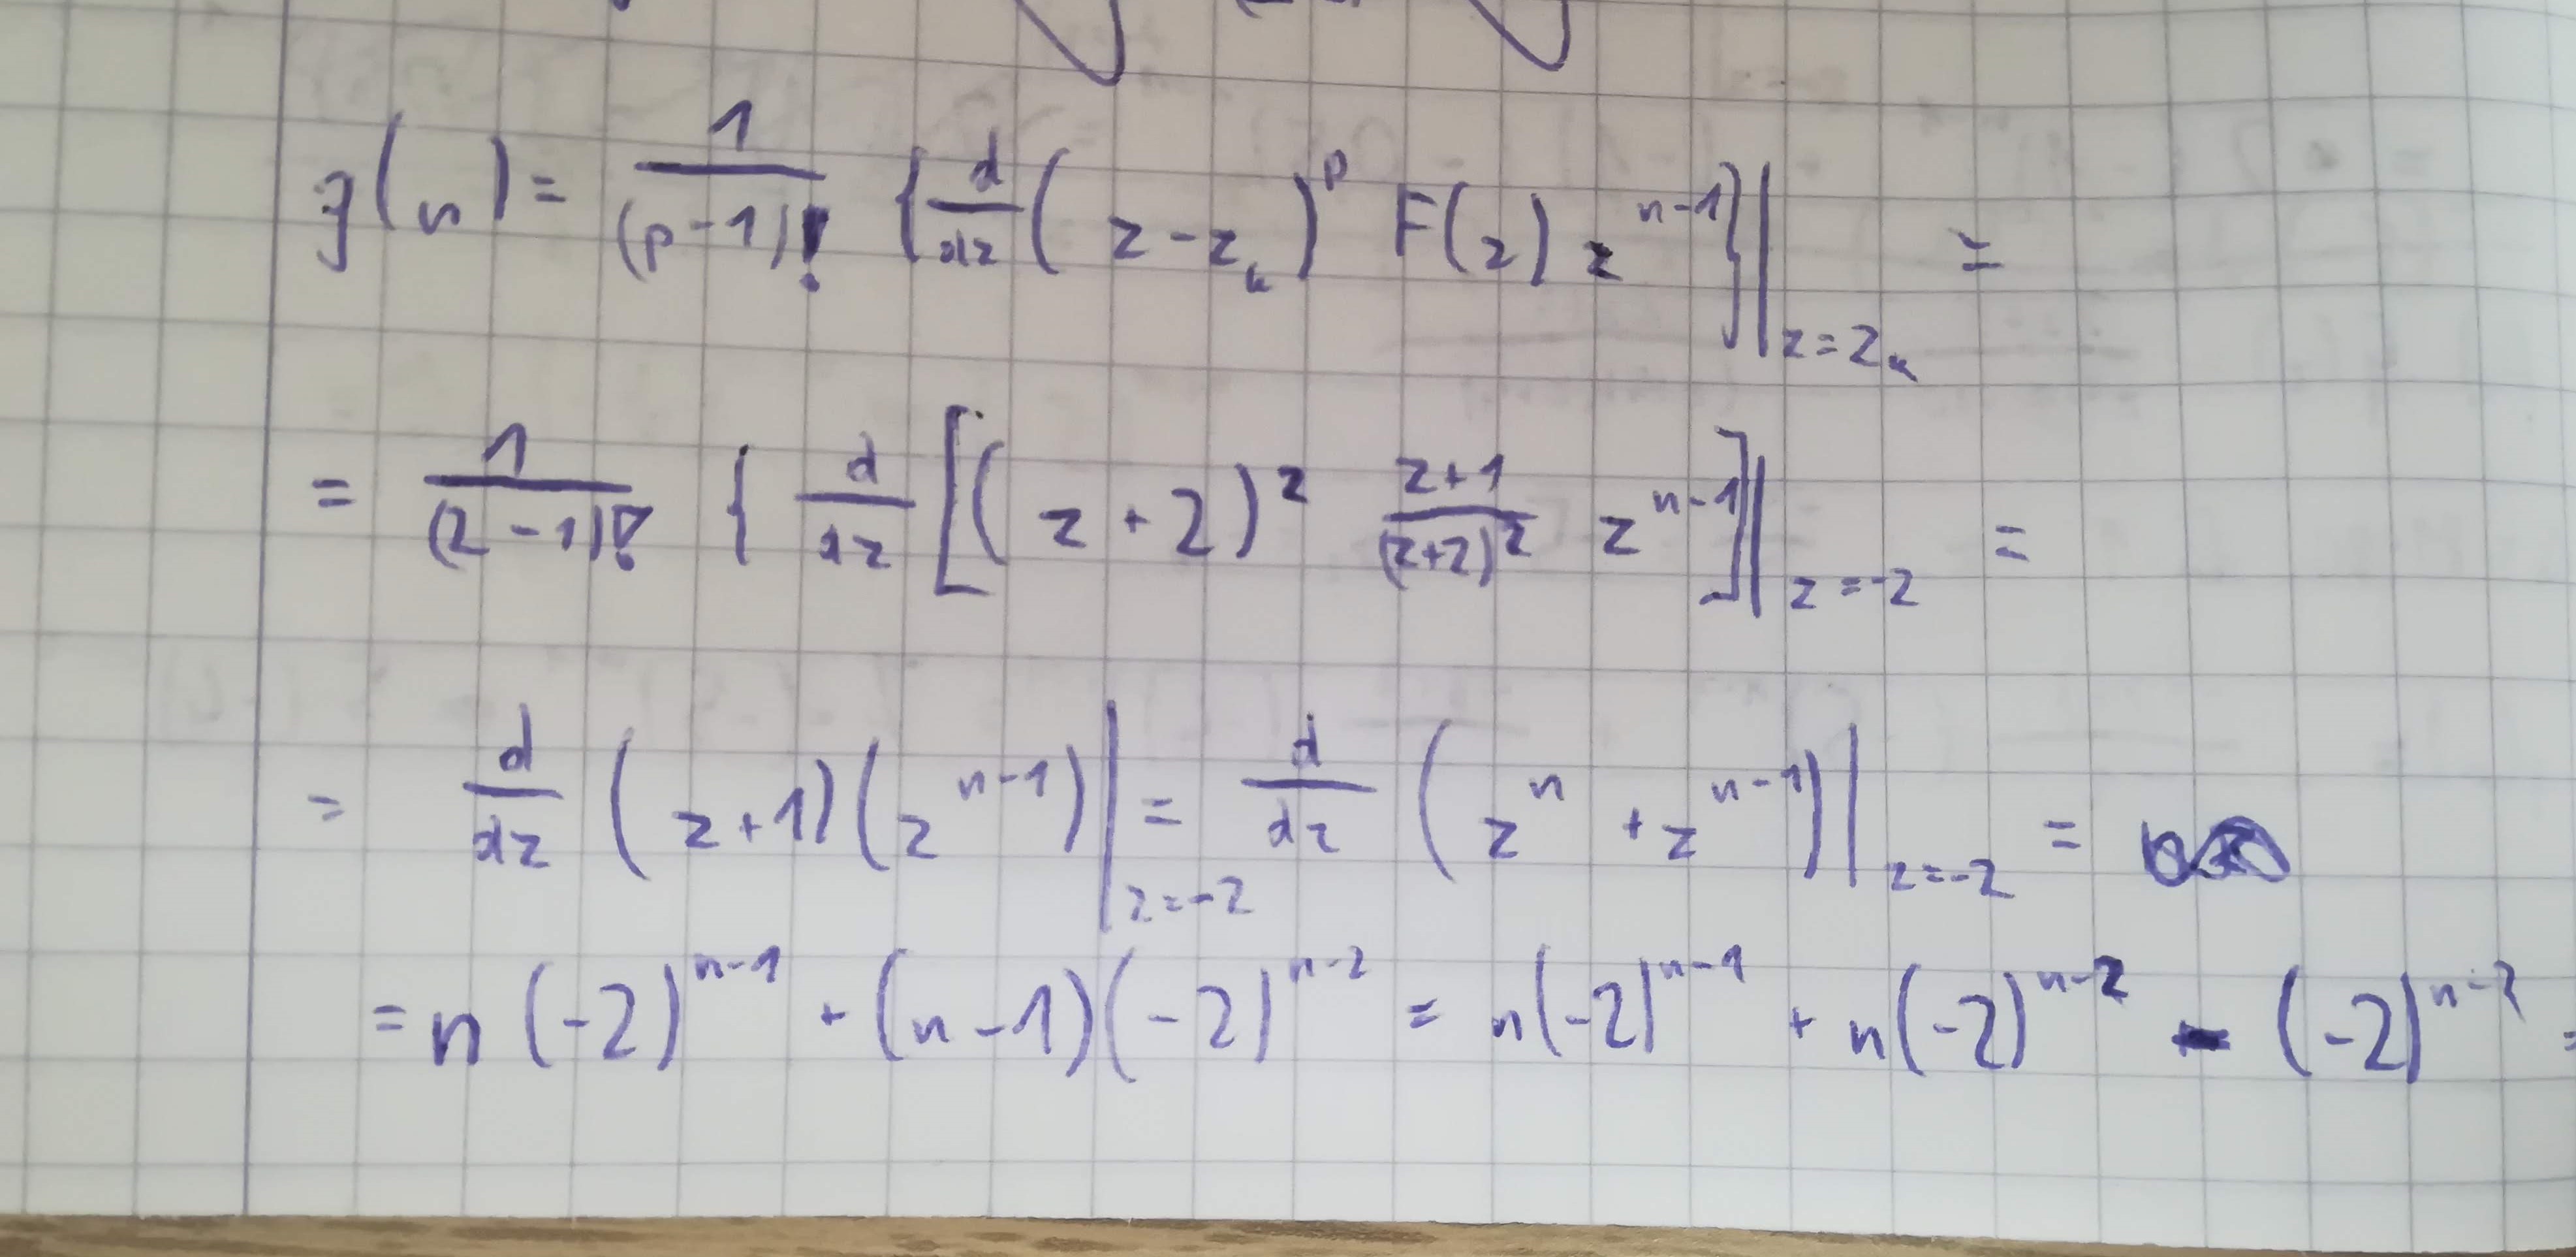 g(n) = 1/(p-1)! {d/dz (z-z_k)^p F(z) z^{n-1}}|_{z=z_k} =
= 1/(2-1)! { d/dz [(z+2)^2 (z+1)/(z+2)^2 z^{n-1}]|_{z=-2} =
= d/dz (z+1)(z^{n-1})|_{z=-2} = d/dz (z^n + z^{n-1})|_{z=-2} =
= n(-2)^{n-1} + (n-1)(-2)^{n-2} = n(-2)^{n-1} + n(-2)^{n-2} - (-2)^{n-2} =